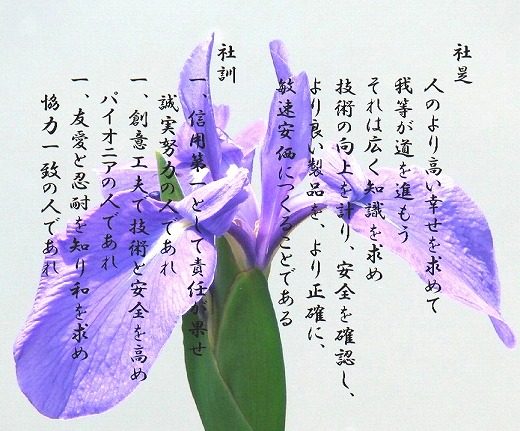 社是
人のより高い幸せを求めて
我等が道を進もう
それは広く知識を求め
技術の向上を計り、安全を確認し、
より良い製品を、より正確に、
敏速安価につくることである
社訓
一、信用第一として責任が果せ
誠実努力の人であれ
一、創意工夫で技術と安全を高め
パイオニアの人であれ
一、友愛と忍耐を知り和を求め
協力一致の人であれ